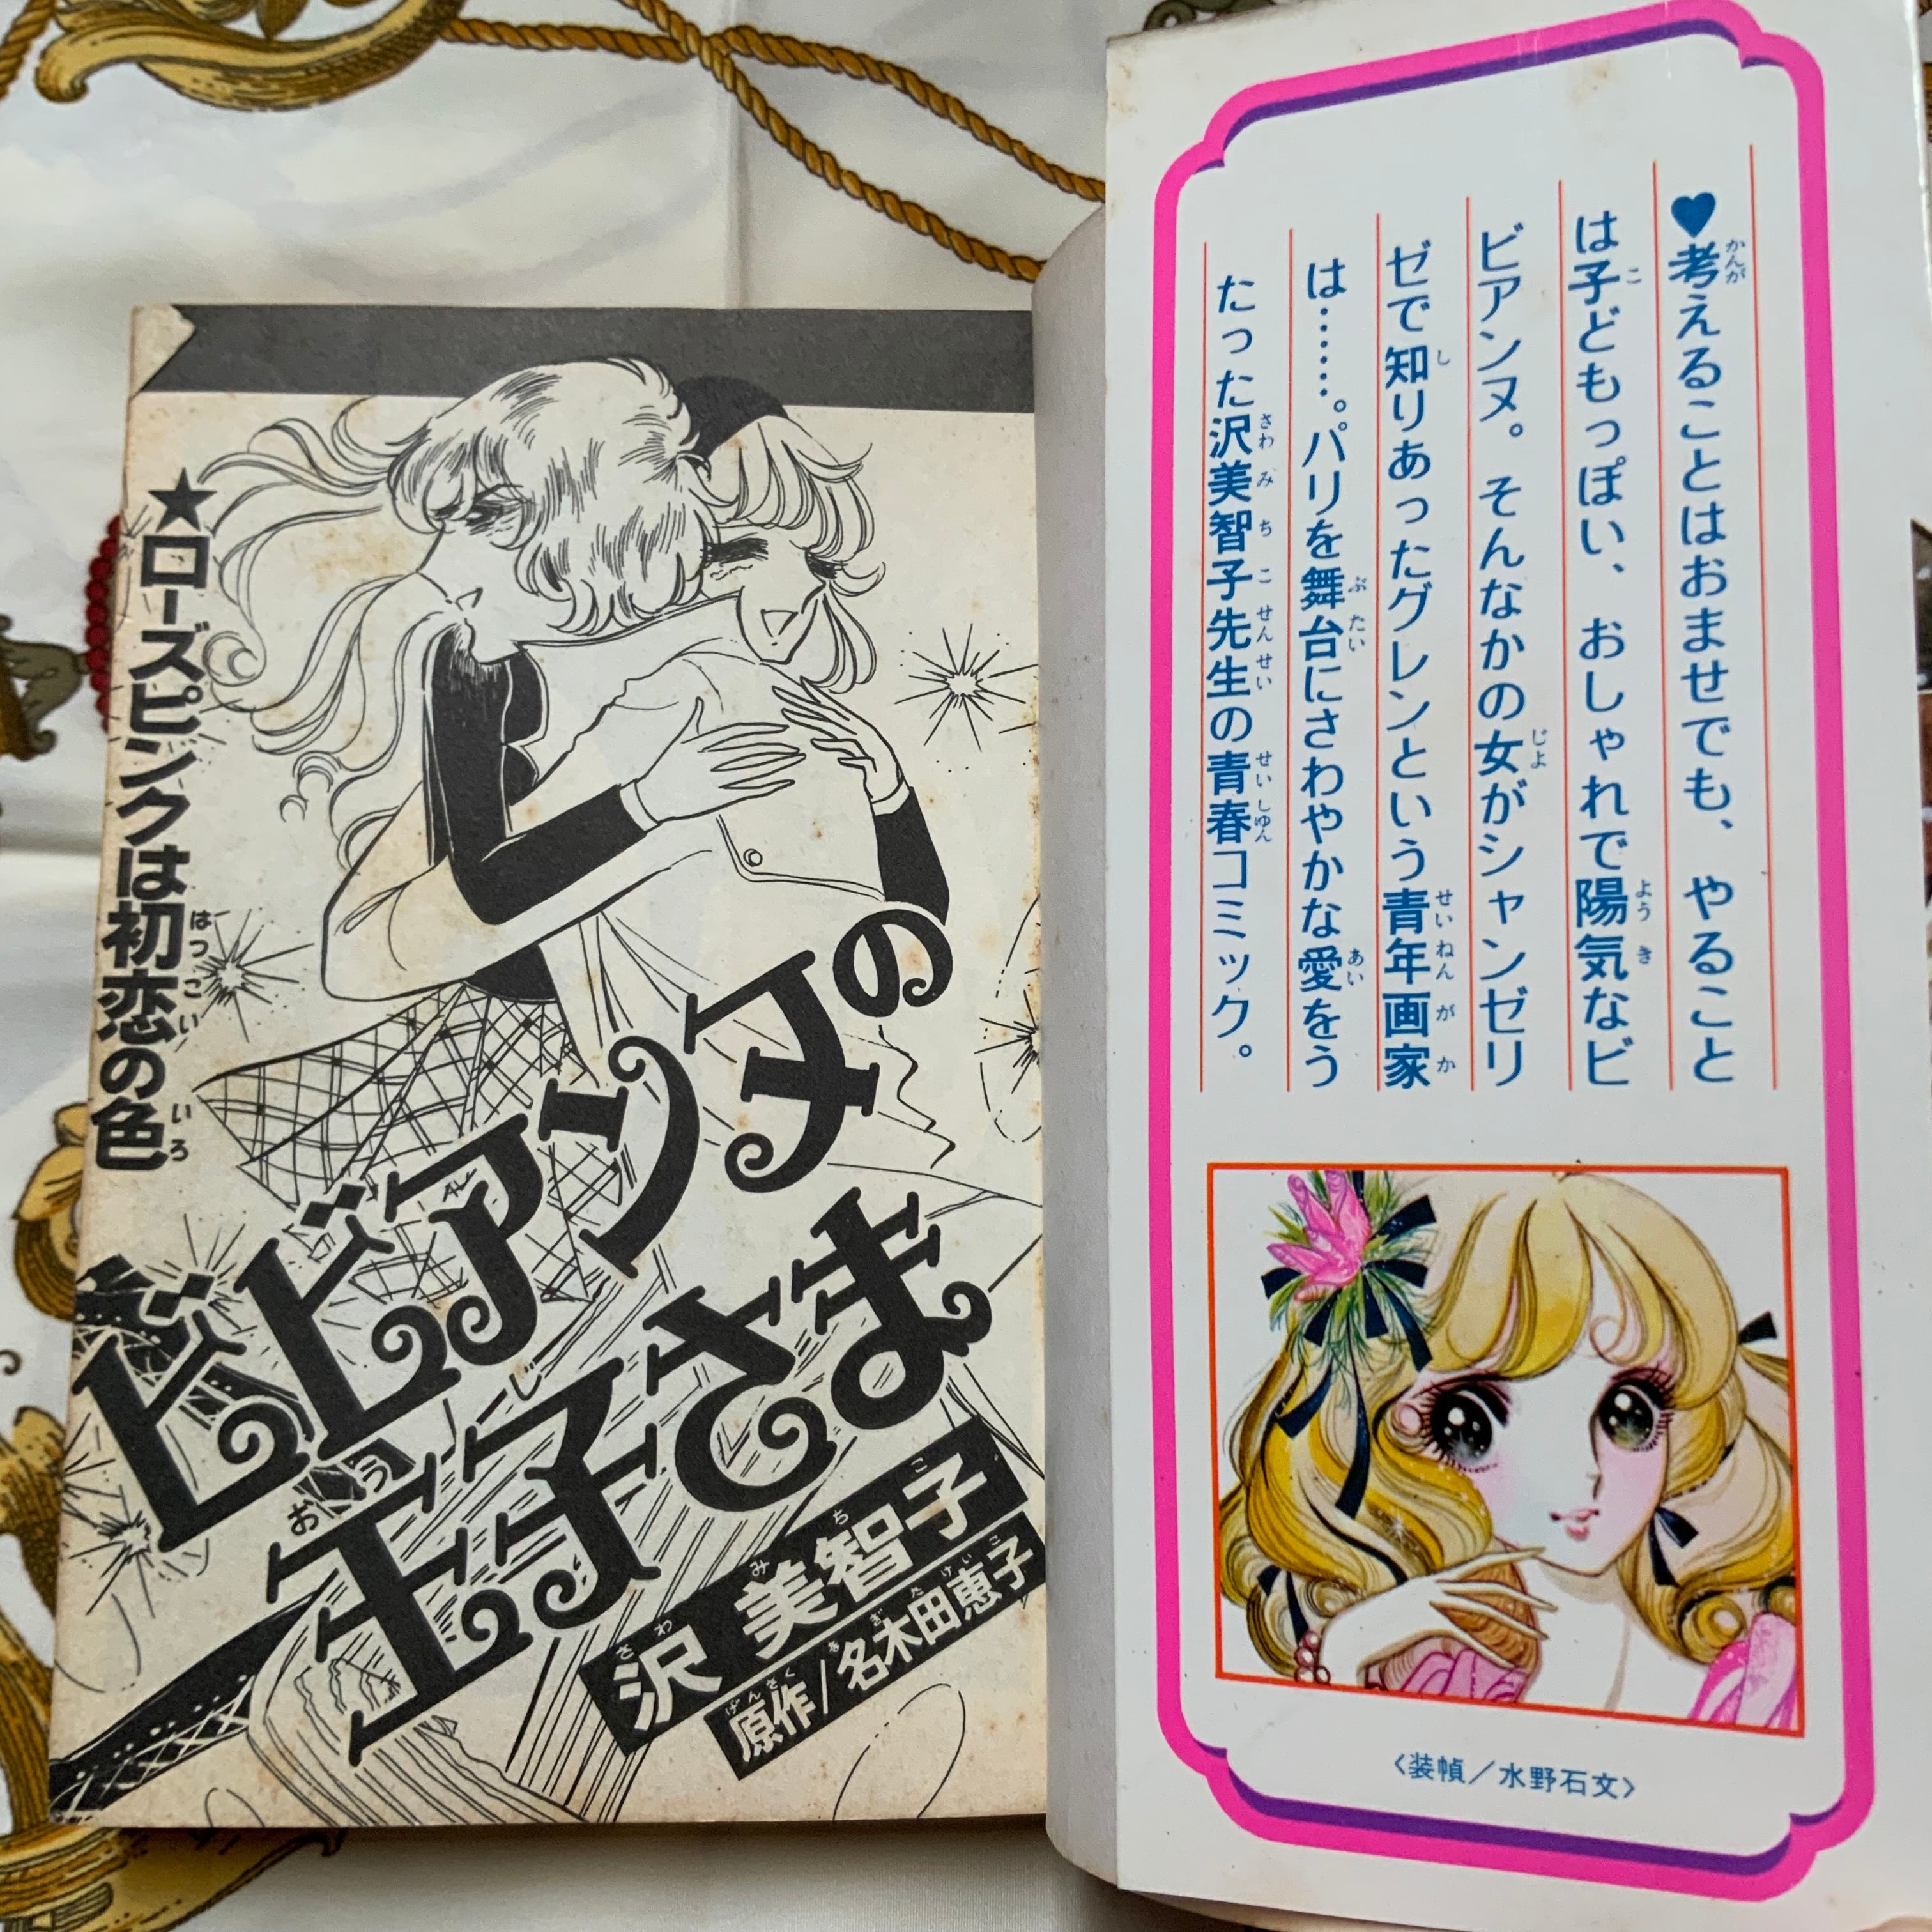 ♥考えることはおませでも、やること
は子どもっぽい、おしゃれで陽気なビ
ビアンヌ。そんなかの女がシャンゼリ
ゼで知りあったグレンという青年画家
は……。パリを舞台にさわやかな愛をう
たった沢美智子先生の青春コミック。
〈装幀／水野石文〉
★ローズピンクは初恋の色
ビビアンヌの
王子さま
沢 美智子
原作/名木田恵子